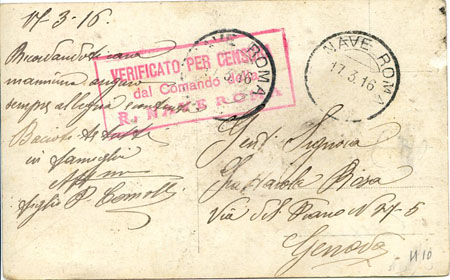 17-3-16.
Ricordandoti cara
mammina auguro
sempre allegra e
Bacioni a tutti
in famiglia
figlio P. Comotti
VERIFICATO PER CENSURA
dal Comando della
R. NAVE ROMA
NAVE ROMA
16
NAVE ROMA
17.3.16
Gent. Signora
Rosa
Via del Piano N 27-5
Genova
H10